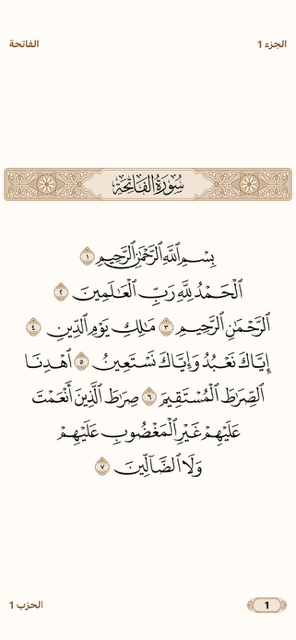 الجزء 1
الفاتحة
سُورَةُ الفَاتِحَةِ
بِسْمِ ٱللَّهِ ٱلرَّحْمَٰنِ ٱلرَّحِيمِ ١
ٱلْحَمْدُ لِلَّهِ رَبِّ ٱلْعَٰلَمِينَ ٢
ٱلرَّحْمَٰنِ ٱلرَّحِيمِ ٣ مَٰلِكِ يَوْمِ ٱلدِّينِ ٤
إِيَّاكَ نَعْبُدُ وَإِيَّاكَ نَسْتَعِينُ ٥ ٱهْدِنَا
ٱلصِّرَٰطَ ٱلْمُسْتَقِيمَ ٦ صِرَٰطَ ٱلَّذِينَ أَنْعَمْتَ
عَلَيْهِمْ غَيْرِ ٱلْمَغْضُوبِ عَلَيْهِمْ
وَلَا ٱلضَّآلِّينَ ٧
1
الحزب 1